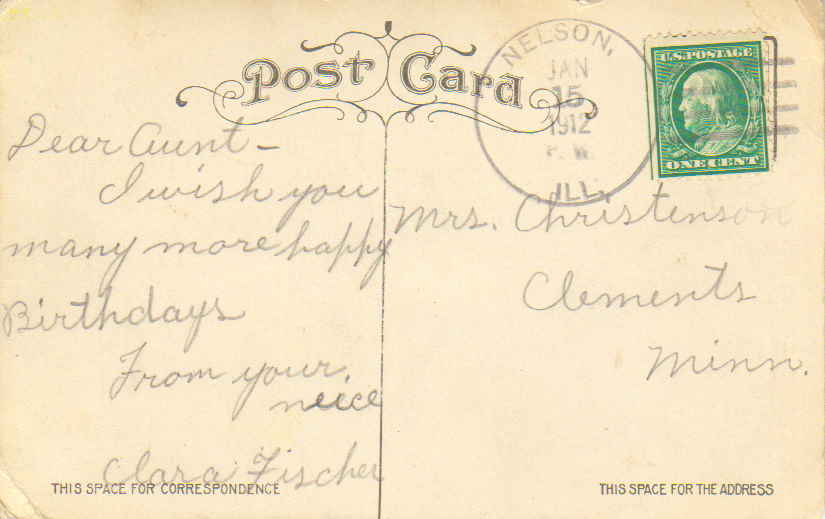 Post Card
NELSON,
JAN
15
1912
P. M.
ILL.
U.S. POSTAGE
ONE CENT
Dear Aunt—
I wish you
many more happy
Birthdays
From your
neice
Clara Fischer
THIS SPACE FOR CORRESPONDENCE
Mrs. Christenson
Clements
Minn.
THIS SPACE FOR THE ADDRESS